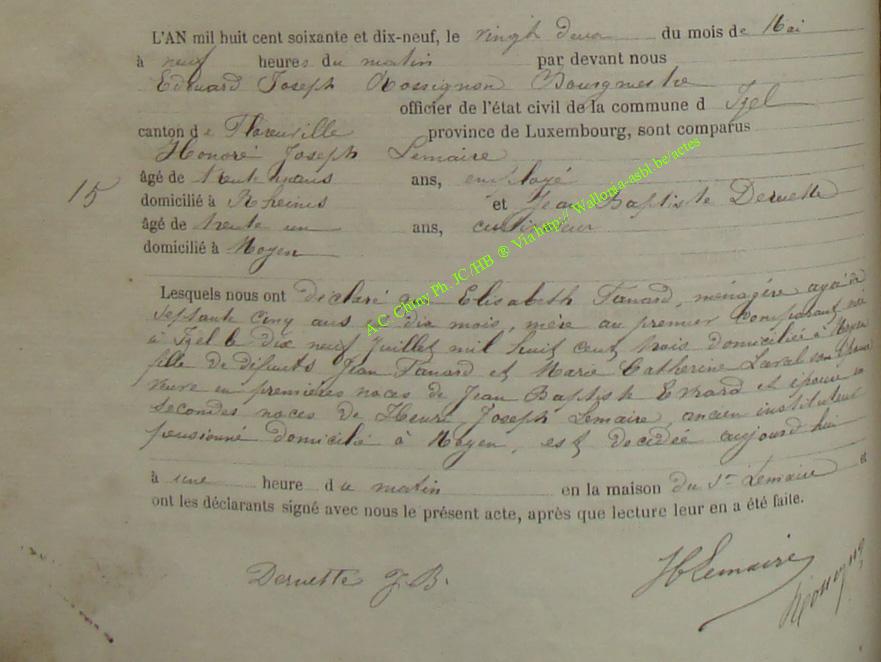 L'AN mil huit cent soixante et dix-neuf, le vingt deux du mois de Mai
à neuf heures du matin par devant nous
Edouard Joseph Rossignon Bourgmestre
officier de l'état civil de la commune d Izel
canton de Florenville province de Luxembourg, sont comparus
Honoré Joseph Lemaire
âgé de ans, employé
15
domicilié à Rheims et Jean Baptiste Deruette
âgé de trente un ans, cultivateur
domicilié à Moyen
Lesquels nous ont déclaré que Elisabeth Fanard, ménagère âgée de
septante cinq ans et dix mois, mère au premier comparant née
à Izel le dix neuf Juillet mil huit cent trois domiciliée à Moyen
fille de défunts Jean Fanard et Marie Catherine Laval
veuve en premières noces de Jean Baptiste Evrard et épouse en
secondes noces de Henri Joseph Lemaire, ancien instituteur
pensionné domicilié à Moyen, est décédée aujourd'hui
à une heure du matin en la maison du Sr Lemaire et
ont les déclarants signé avec nous le présent acte, après que lecture leur en a été faite.
Deruette J.B.
H Lemaire
Rossignon
A.C Chiny Ph. JC/HB ® Via http:// Wallonia-asbl.be/actes